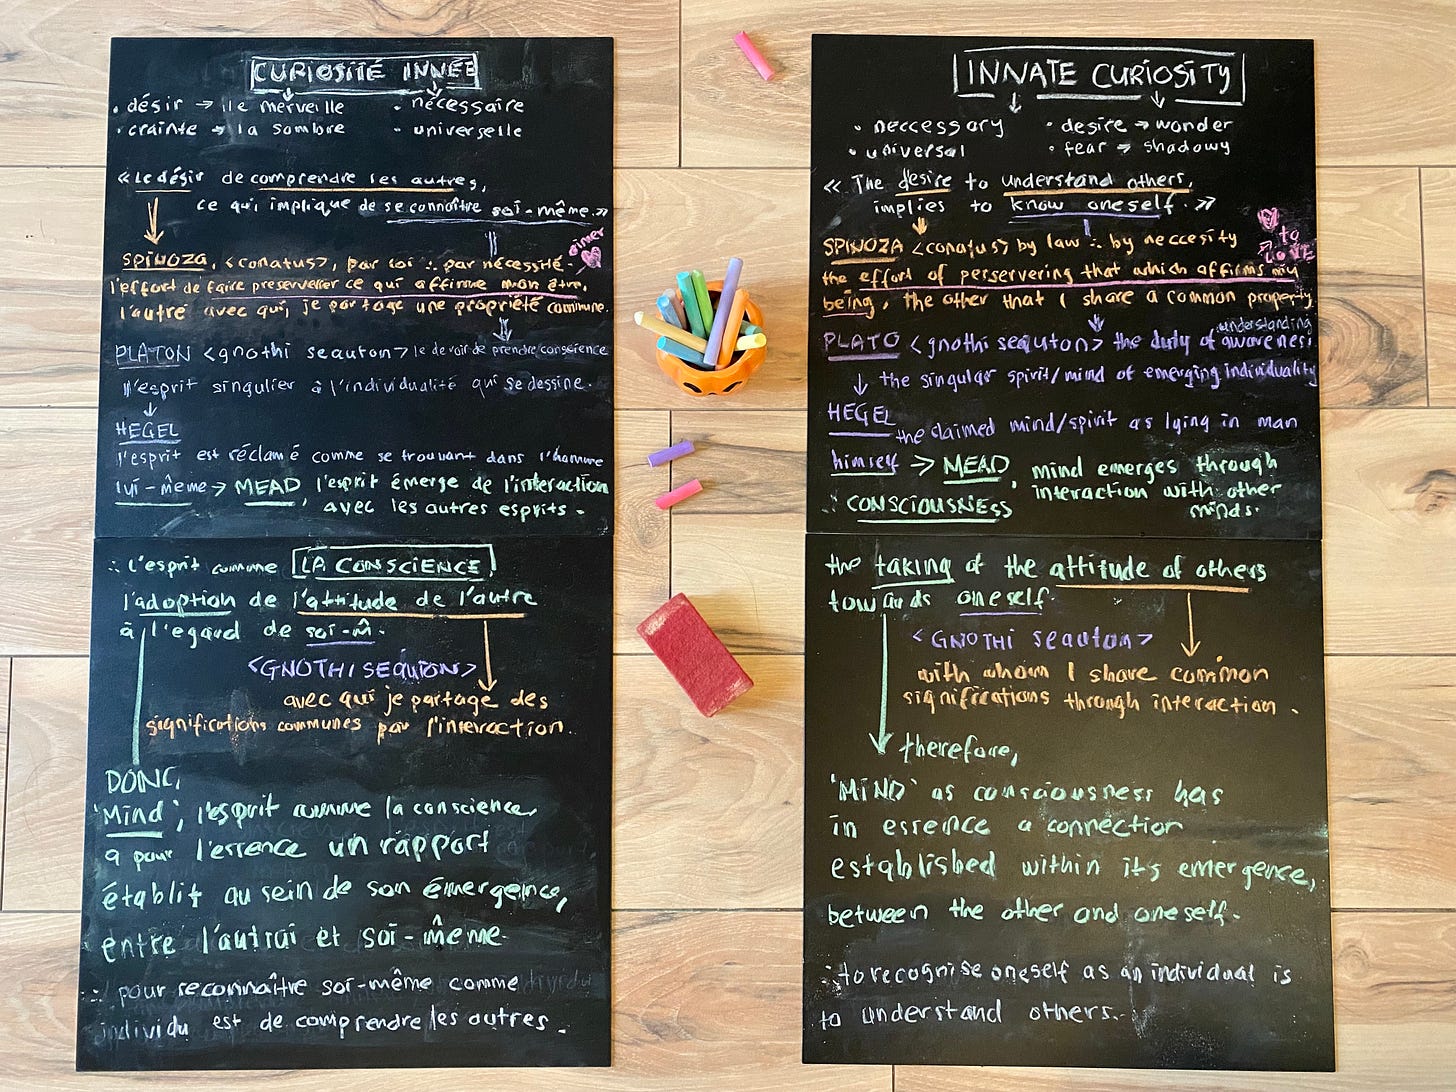 CURIOSITÉ INNÉE
• désir → île merveille
• crainte → la sombre
• nécessaire
• universelle
« Le désir de comprendre les autres,
ce qui implique de se connaître soi-même. »
aimer
SPINOZA, <conatus>, par loi ∴ par nécessité.
l'effort de faire preserverer ce qui affirme mon être,
l'autre avec qui, je partage une propriété commune.
PLATON <gnothi seauton> le devoir de prendre conscience
l'esprit singulier à l'individualité qui se dessine.
HEGEL
l'esprit est réclamé comme se trouvant dans l'homme
lui-même → MEAD, l'esprit émerge de l'interaction
avec les autres esprits.
∴ l'esprit comme LA CONSCIENCE,
l'adoption de l'attitude de l'autre
à l'egard de soi-m̂.
<GNOTHI SEAUTON>
avec qui je partage des
significations communes par l'interaction.
DONC,
'Mind', l'esprit comme la conscience,
a pour l'essence un rapport
établit au sein de son émergence,
entre l'autrui et soi-même.
∴ pour reconnaître soi-même comme
individu est de comprendre les autres.
INNATE CURIOSITY
• neccessary
• universal
• desire → wonder
• fear → shadowy
« The desire to understand others,
implies to know oneself. »
to LOVE
SPINOZA <conatus> by law ∴ by neccesity
the effort of perservering that which affirms my
being, the other that I share a common property.
understanding
PLATO <gnothi seauton> the duty of awareness
the singular spirit/mind of emerging individuality
HEGEL the claimed mind/spirit as lying in man
himself → MEAD, mind emerges through
interaction with other
minds.
∴ CONSCIOUSNESS
the taking of the attitude of others
towards oneself.
<GNOTHI seauton>
with whom I share common
significations through interaction.
therefore,
'MIND' as consciousness has
in essence a connection
established within its emergence,
between the other and oneself.
∴ to recognise oneself as an individual is
to understand others.